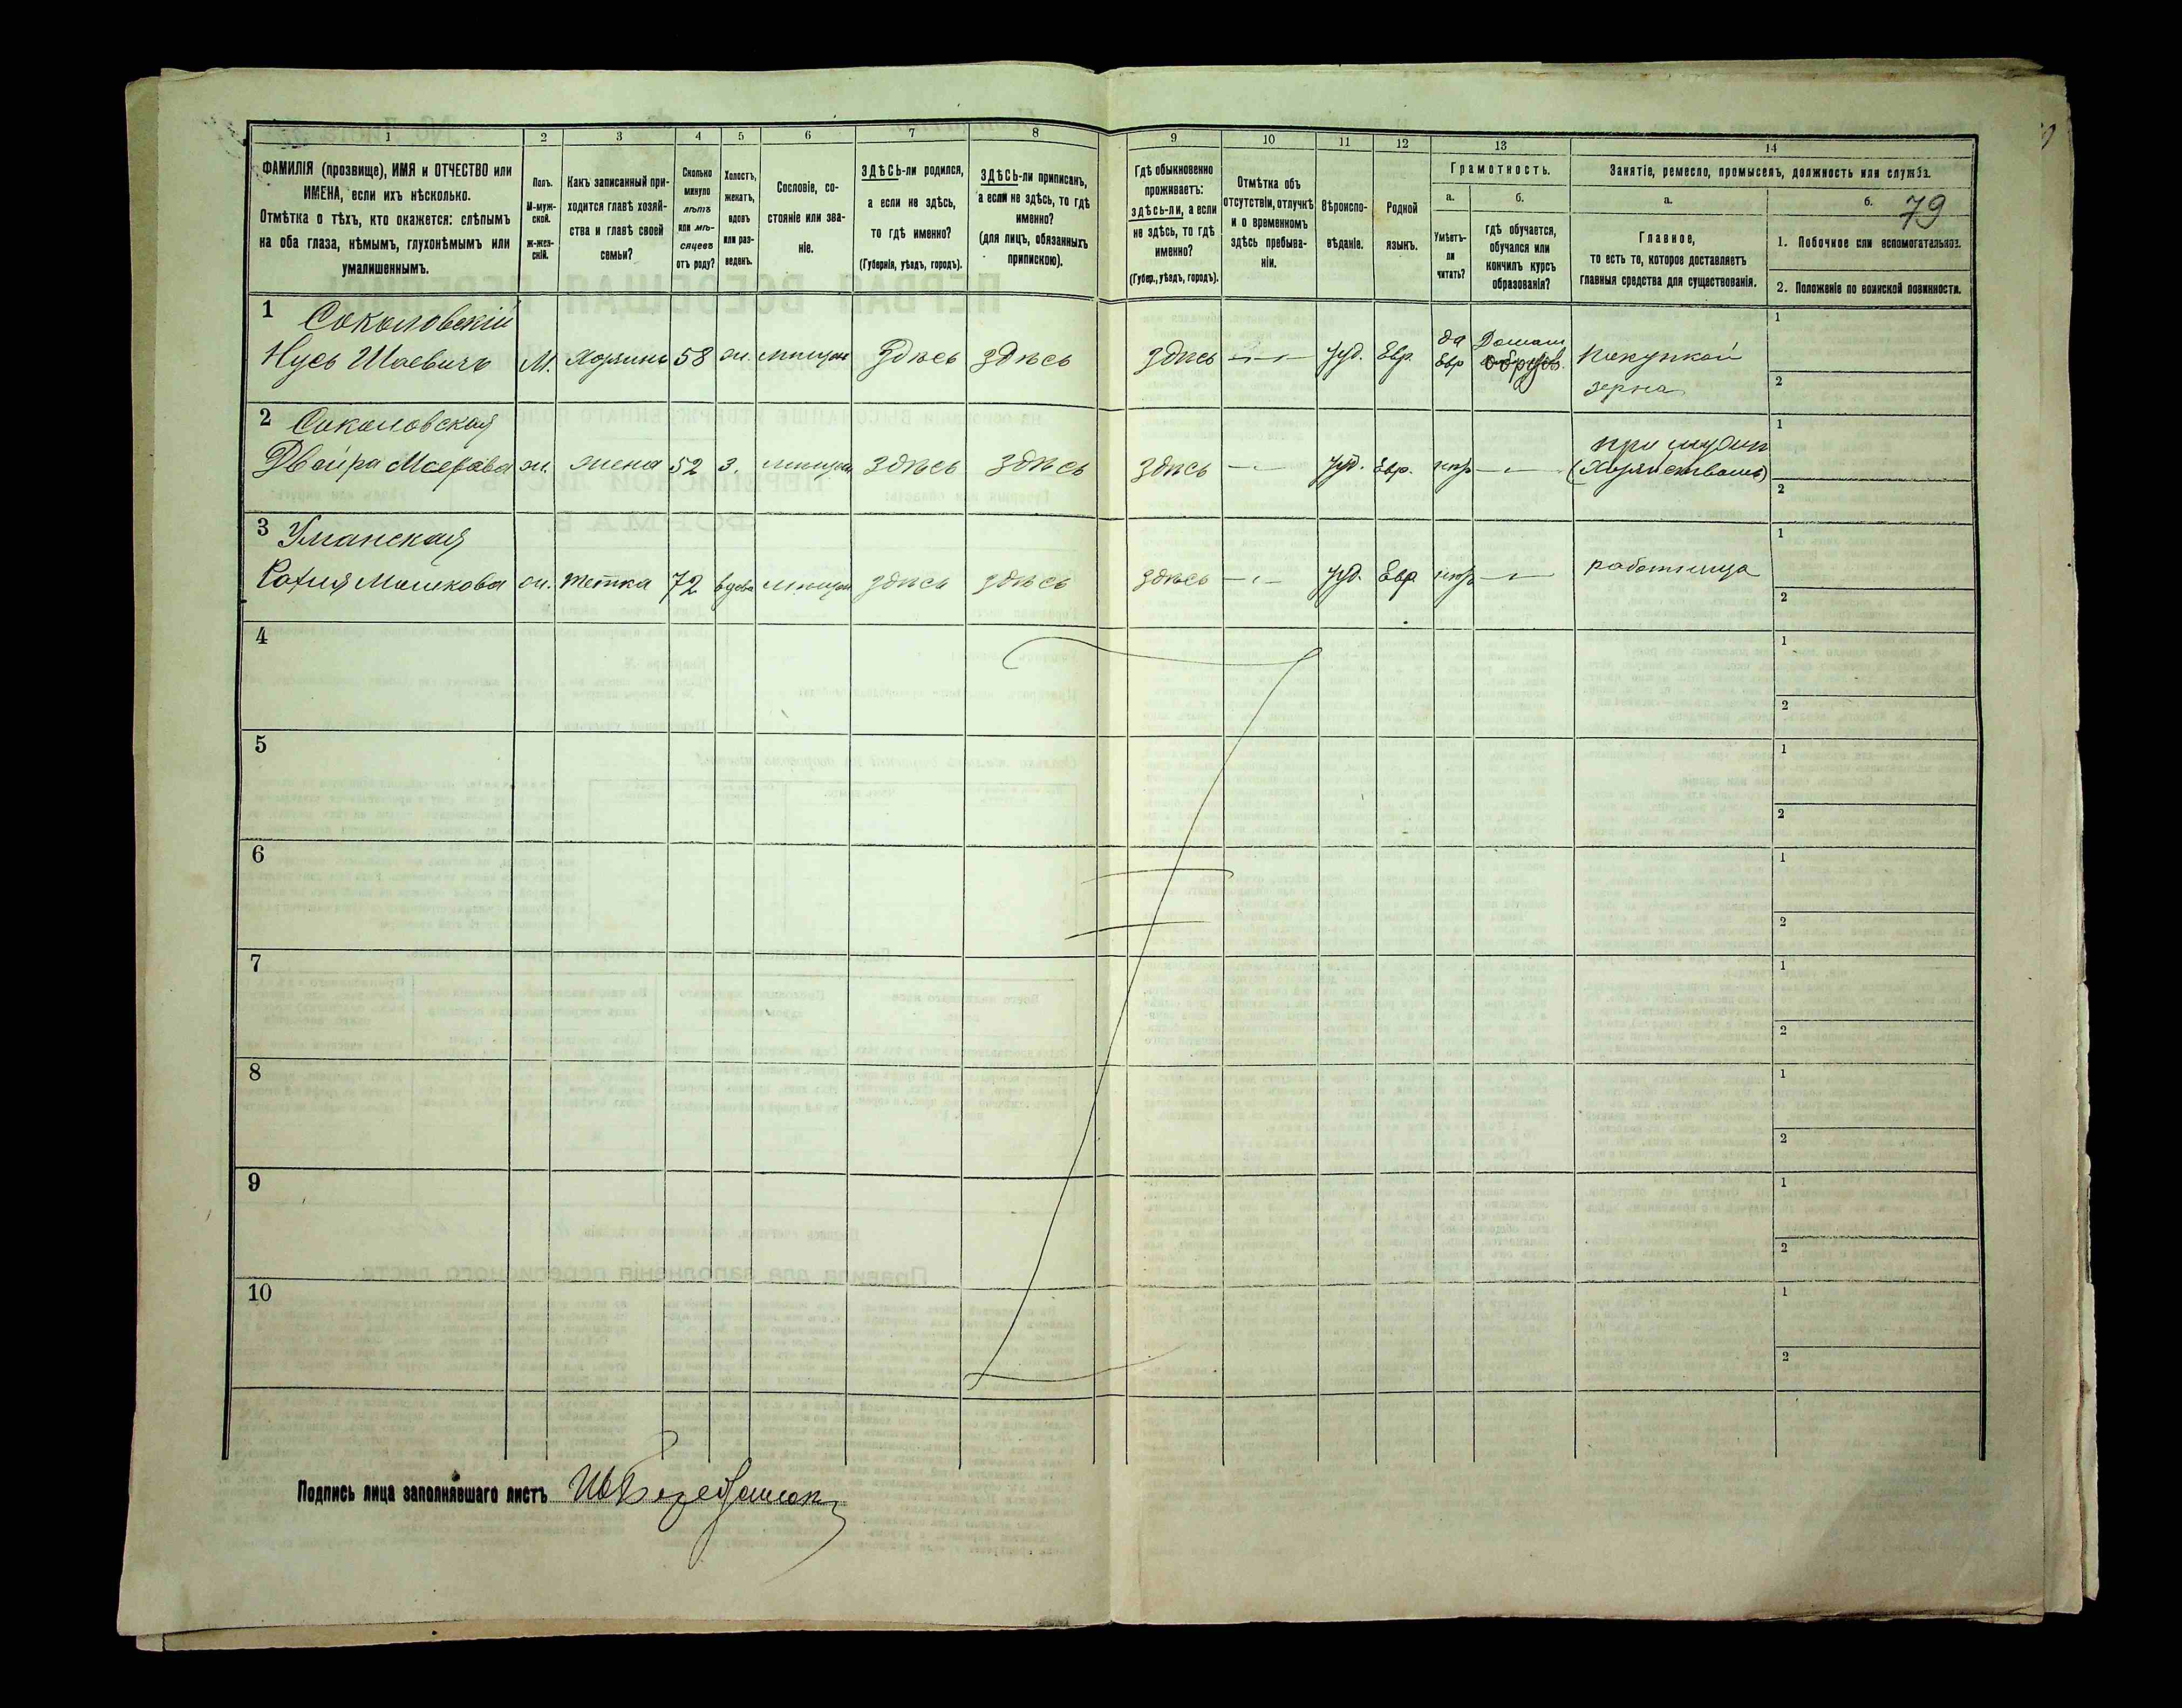 1
2
3
4
5
6
7
8
ФАМИЛІЯ (прозвище), ИМЯ и ОТЧЕСТВО или
ИМЕНА, если ихъ нѣсколько.
Отмѣтка о тѣхъ, кто окажется: слѣпымъ
на оба глаза, нѣмымъ, глухонѣмымъ или
умалишеннымъ.
Полъ.
М-муж-
ской.
ж-жен-
скій.
Какъ записанный при-
ходится главѣ хозяй-
ства и главѣ своей
семьи?
Сколько
минуло
лѣтъ
или мѣ-
сяцевъ
отъ роду?
Холостъ,
женатъ,
вдовъ
или раз-
веденъ.
Сословіе, со-
стояніе или зва-
ніе.
ЗДѢСЬ-ли родился,
а если не здѣсь,
то гдѣ именно?
(Губернія, уѣздъ, городъ).
ЗДѢСЬ-ли приписанъ,
а если не здѣсь, то гдѣ
именно?
(для лицъ, обязанныхъ
припискою).
9
10
11
12
13
14
Гдѣ обыкновенно
проживаетъ:
здѣсь-ли, а если
не здѣсь, то гдѣ
именно?
(Губер., уѣздъ, городъ).
Отмѣтка объ
отсутствіи, отлучкѣ
и о временномъ
здѣсь пребыва-
ніи.
Вѣроиспо-
вѣданіе.
Родной
языкъ.
Грамотность.
а.
Умѣетъ-
ли
читать?
б.
гдѣ обучается,
обучался или
кончилъ курсъ
образованія?
Занятіе, ремесло, промыселъ, должность или служба.
а.
Главное,
то есть то, которое доставляетъ
главныя средства для существованія.
б.
79
1. Побочное или вспомогательное.
2. Положеніе по воинской повинности.
1 Соколовскій
Нусь Шаевичъ М. Хозяинъ 58 ж. мѣщан Здѣсь здѣсь здѣсь Іуд. Евр. да Евр Домаш Покупкой
зерна
1
2
2 Соколовская
Двойра ж. жена 52 з. мѣщан здѣсь здѣсь здѣсь Іуд. Евр. нѣтъ при мужѣ
1
2
3 Уманская
Мошкова ж. тетка 72 вдова мѣщан здѣсь здѣсь здѣсь Іуд. Евр нѣтъ работница
1
2
4
1
2
5
1
2
6
1
2
7
1
2
8
1
2
9
1
2
10
1
2
Подпись лица заполнявшаго листъ